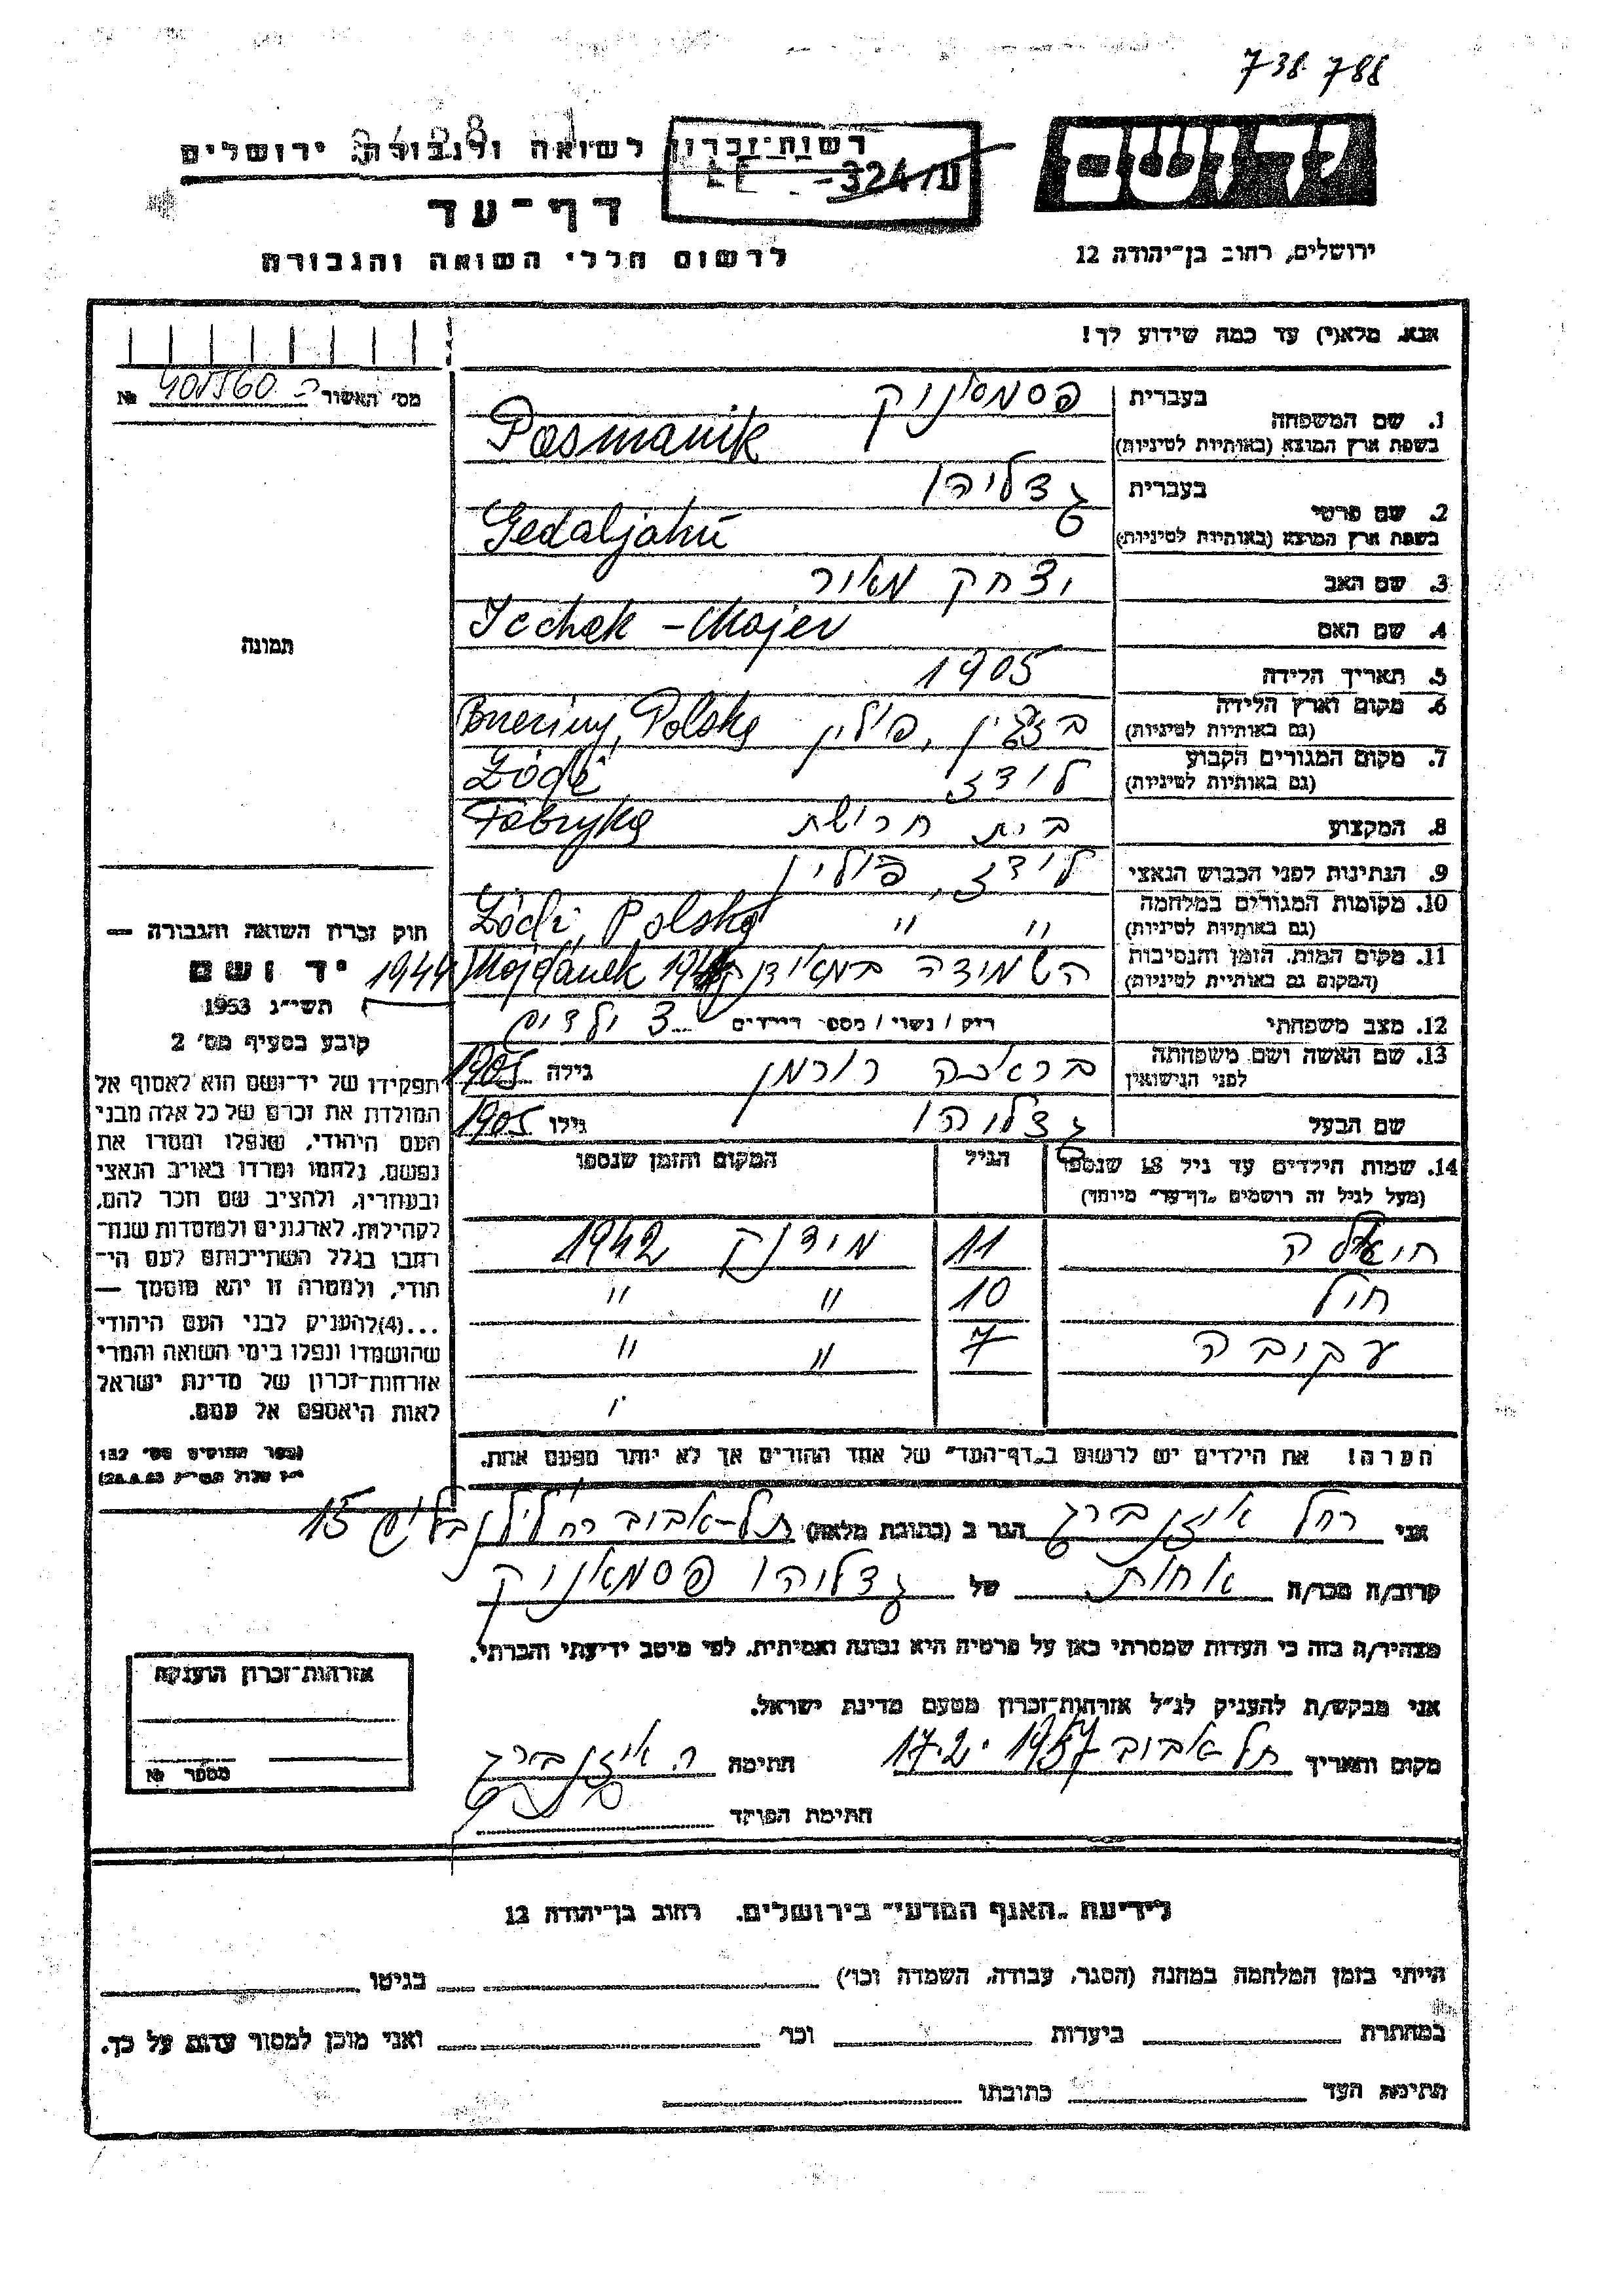 738 788
יד ושם
רשות־זכרון לשואה ולגבורה, ירושלים
324/ט
דף־עד
ירושלים, רחוב בן־יהודה 12
לרשום חללי השואה והגבורה
אנא, מלא(י) עד כמה שידוע לך!
מס' האשור № 401560
1. שם המשפחה
בעברית פסמניק
בשפת ארץ המוצא (באותיות לטיניות) Pasmanik
2. שם פרטי
בעברית גדליהו
בשפת ארץ המוצא (באותיות לטיניות) Gedaljahu
3. שם האב יצחק מאיר
4. שם האם Icchak - Majer
5. תאריך הלידה 1905
6. מקום וארץ הלידה
(גם באותיות לטיניות) פולין, Polska
7. מקום המגורים הקבוע לודז
(גם באותיות לטיניות) Łódź
8. המקצוע בית חרושת Fabryka
9. הנתינות לפני הכבוש הנאצי לודז, פולין
10. מקומות המגורים במלחמה " "
(גם באותיות לטיניות) Łódź, Polska
11. מקום המות, הזמן והנסיבות
(המקום גם באותיות לטיניות) השמידה במאידנק Majdanek 1944
12. מצב משפחתי רוק / נשוי / מספר הילדים 3 ילדים
13. שם האשה ושם משפחתה
לפני הנישואין גילה 1905
שם הבעל גדליהו גילו 1905
14. שמות הילדים עד גיל 18 שנספו
(מעל לגיל זה רושמים "דף־עד" מיוחד)
הגיל
המקום והזמן שנספו
11 מידנק 1942
10 " "
עקובה 7 " "
הערה! את הילדים יש לרשום ב"דף־העד" של אחד ההורים אך לא יותר מפעם אחת.
תמונה
חוק זכרון השואה והגבורה —
יד ושם
תשי"ג 1953
קובע בסעיף מס' 2
תפקידו של יד־ושם הוא לאסוף אל
המולדת את זכרם של כל אלה מבני
העם היהודי, שנפלו ומסרו את
נפשם, נלחמו ומרדו באויב הנאצי
ובעוזריו, ולהציב שם וזכר להם,
לקהילות, לארגונים ולמוסדות שנח־
רבו בגלל השתייכותם לעם הי־
הודי, ולמטרה זו יהא מוסמך —
...(4) להעניק לבני העם היהודי
שהושמדו ונפלו בימי השואה והמרי
אזרחות־זכרון של מדינת ישראל
לאות היאספם אל עמם.
(ספר החוקים מס' 132
אני רחל איזנברג הגר ב (כתובת מלאה) תל-אביב רח' לילנבלום 15
קרוב/ה מכר/ה אחות של גדליהו פסמאניק
מצהיר/ה בזה כי העדות שמסרתי כאן על פרטיה היא נכונה ואמיתית, לפי מיטב ידיעתי והכרתי.
אני מבקש/ת להעניק לנ"ל אזרחות־זכרון מטעם מדינת ישראל.
מקום ותאריך תל-אביב 17.2.1957 חתימה ר. איזנברג
חתימת הפוקד
אזרחות־זכרון הוענקה
מספר №
לידיעת "האגף המדעי" בירושלים, רחוב בן־יהודה 12
הייתי בזמן המלחמה במחנה (הסגר, עבודה, השמדה וכו') בגיטו
במחתרת ביערות וכו' ואני מוכן למסור עדות על כך.
חתימת העד כתובתו